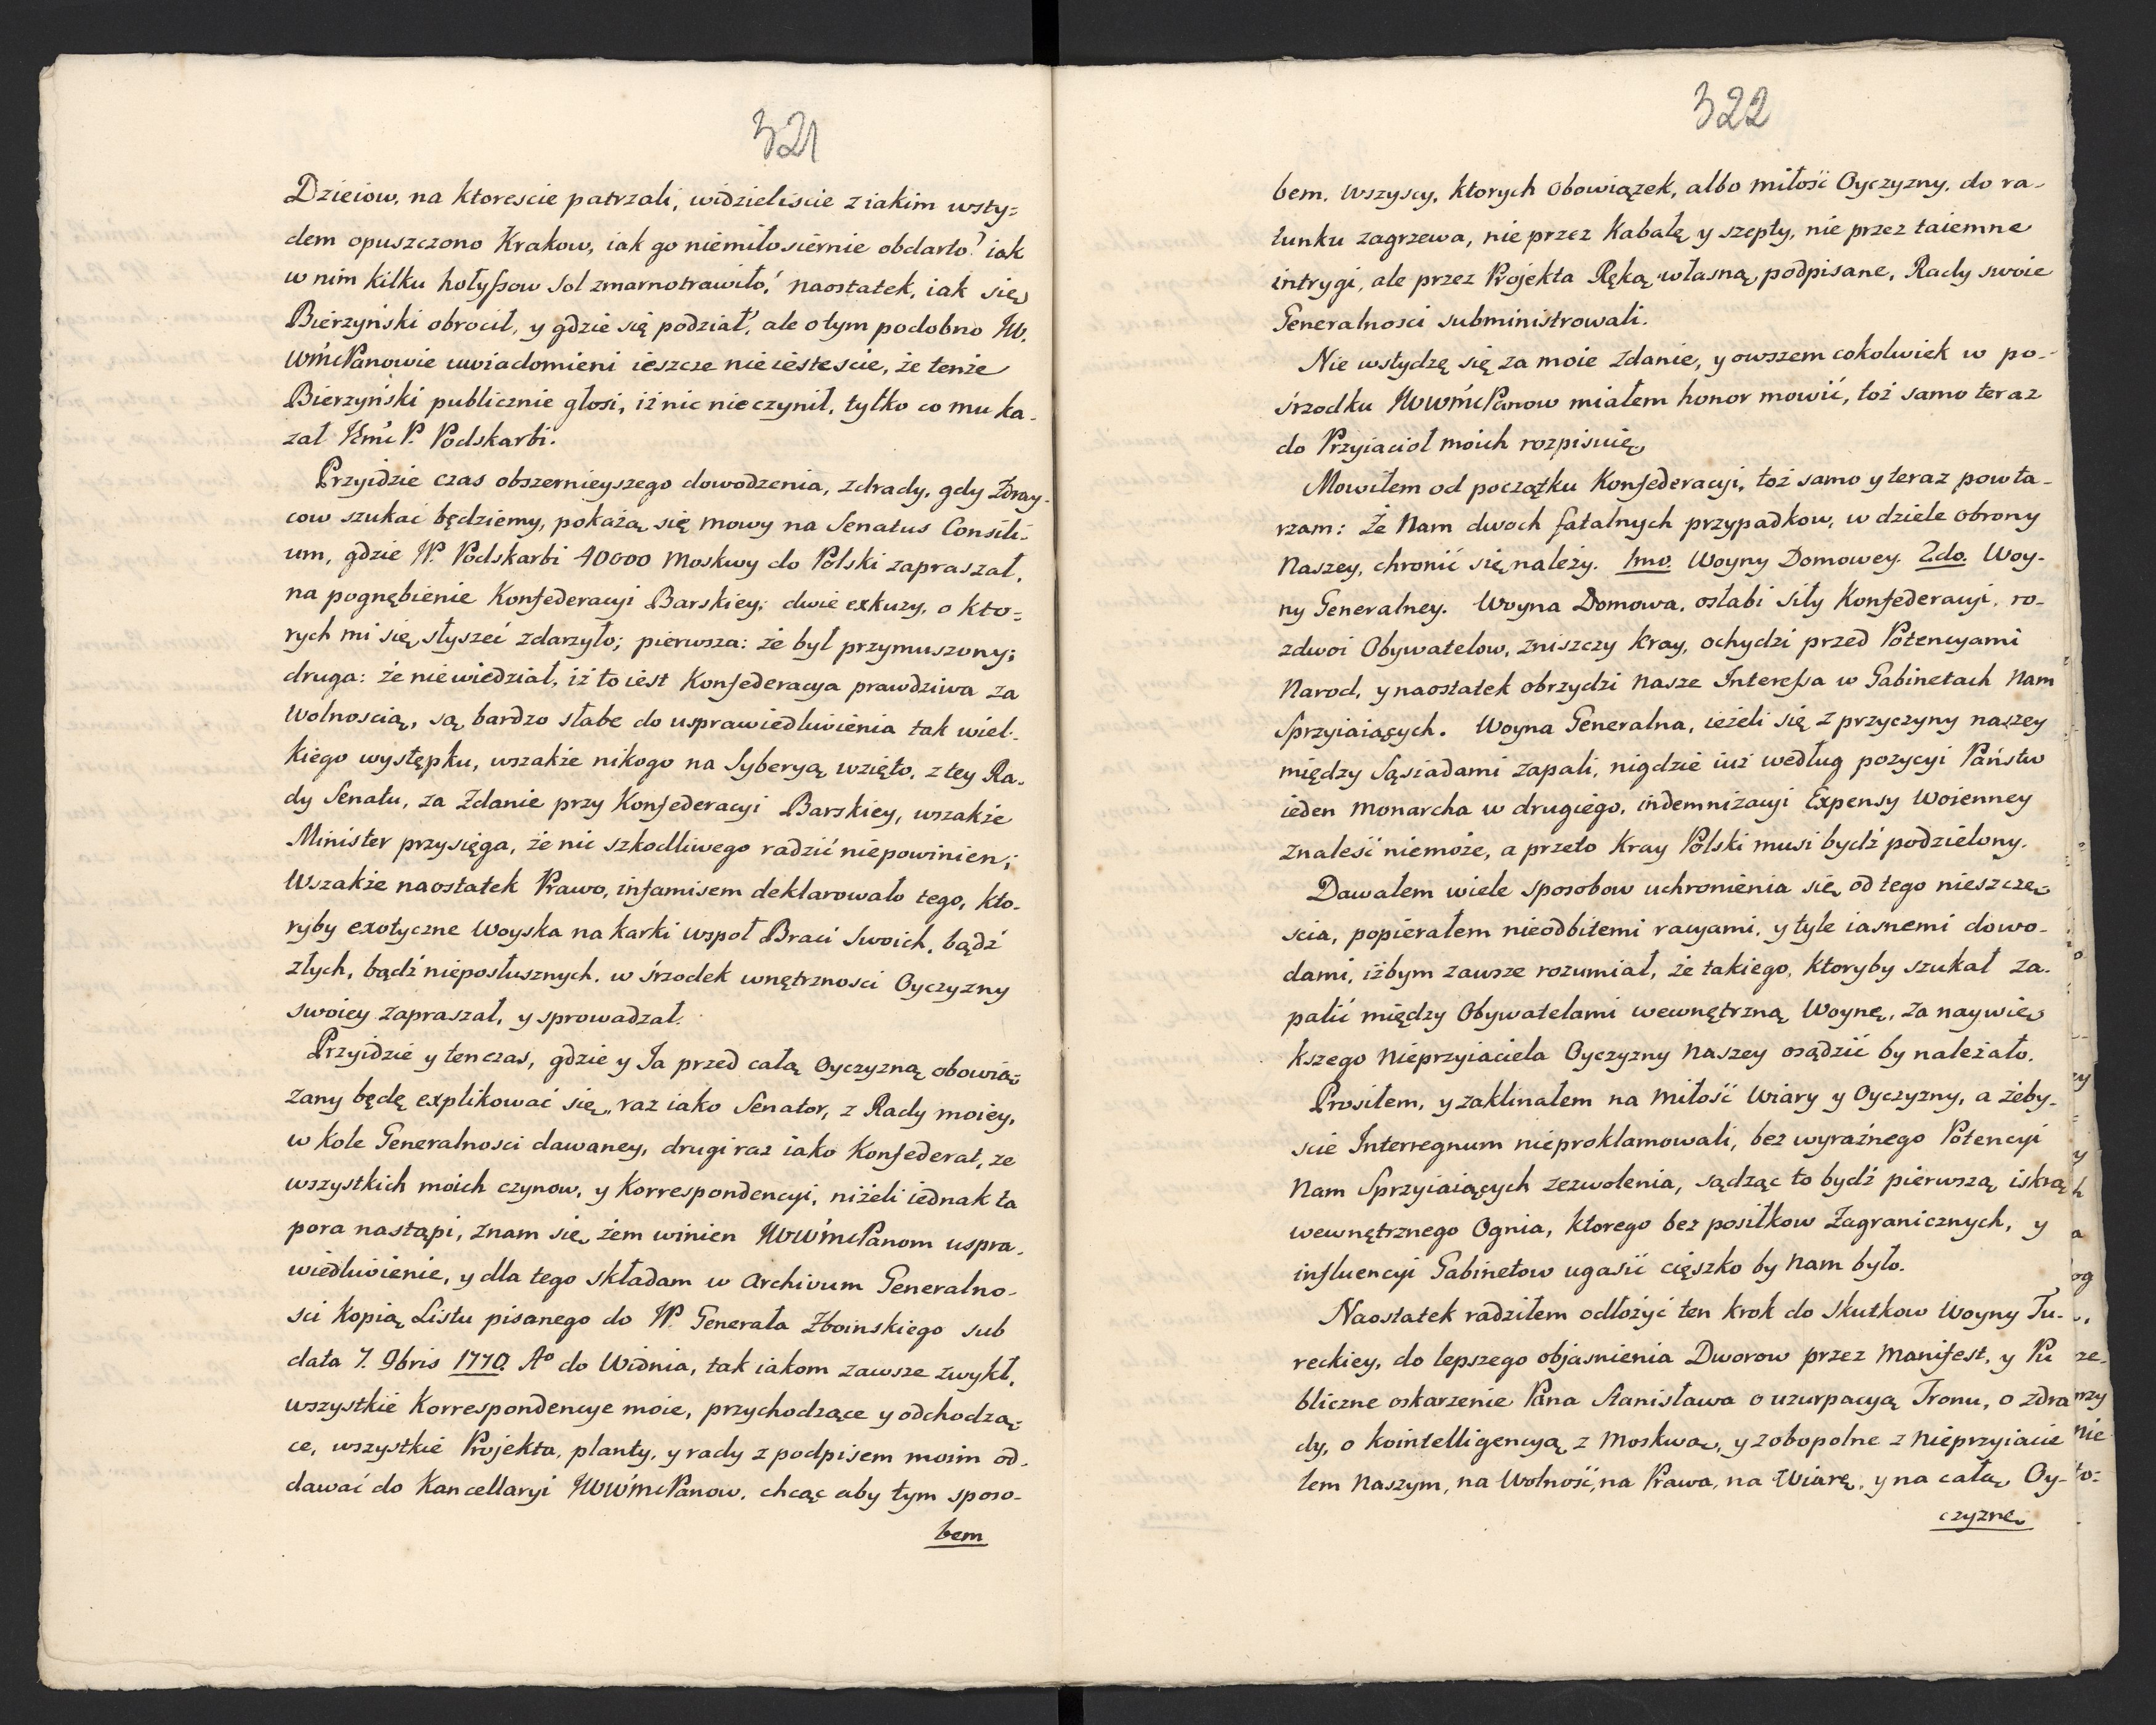 321
Dzieiow, na ktorescie patrzali, widzieliscie z iakim wsty=
dem opuszczono Krakow, iak go niemiłosiernie obdarto? iak
w nim kilku hołyſsow Sol zmarnotrawiło! naostatek, iak się
Bierzyński obrocił, y gdzie się podział, ale o tym podobno JW.
WmćPanowie uwiadomieni ieszcze nie iestescie, że tenże
Bierzyński publicznie głosi, iż nic nie czynił, tylko co mu ka-
zał Jmć P. Podskarbi.
Przyidzie czas obszernieyszego dowodzenia, zdrady, gdy Zdray-
cow szukać będziemy, pokażą się mowy na Senatus Consili-
um, gdzie JP. Podskarbi 40000 Moskwy do Polski zapraszał,
na pognębienie Konfederacyi Barskiey; dwie exkuzy, o kto=
rych mi się słyszeć zdarzyło; pierwsza: że był przymuszony;
druga: że niewiedział, iż to iest Konfederacya prawdziwa za
Wolnoscią, są bardzo słabe do usprawiedliwienia tak wiel-
kiego występku, wszakże nikogo na Syberyą wzięto, z tey Ra-
dy Senatu, za Zdanie przy Konfederacyi Barskiey, wszakże
Minister przysięga, że nic szkodliwego radzić niepowinien;
Wszakże naostatek Prawo, infamisem deklarowało tego, kto-
ryby exotyczne Woyska na karki wspoł Braci Swoich, bądź
złych, bądź nieposłusznych, w śrzodek wnętrznosci Oyczyzny
swoiey zapraszał, y sprowadzał.
Przyidzie y ten czas, gdzie y Ja przed całą Oyczyzną obowią=
zany będę explikować się, raz iako Senator, z Rady moiey,
w Kole Generalnosci dawaney, drugi raz iako Konfederat, ze
wszystkich moich czynow, y Korrespondencyi, niżeli iednak ta
pora nastąpi, znam się, żem winien JWWmćPanom uspra-
wiedliwienie, y dla tego składam w Archivum Generalno-
sci Kopią Listu pisanego do JP. Generała Zboinskiego sub
data 7. 9bris 1770. Aº do Widnia, tak iakom zawsze zwykł,
wszystkie Korrespondencye moie, przychodzące y odchodzą=
ce, wszystkie Projekta, planty, y rady z podpisem moim od-
dawać do Kancellaryi JWWmćPanow, chcąc aby tym sposo-
bem
322
bem, wszyscy, ktorych obowiązek, albo miłość Oyczyzny, do ra-
tunku zagrzewa, nie przez Kabałę y szepty, nie przez taiemne
intrygi, ale przez Projekta Ręką własną podpisane, Rady swoie
Generalnosci subministrowali.
Nie wstydzę się za moie zdanie, y owszem cokolwiek w po-
śrzodku JWWmćPanow miałem honor mowić, toż samo teraz
do Przyiacioł moich rozpisuię.
Mowiłem od początku Konfederacyi, toż samo y teraz powta-
rzam: Że Nam dwoch fatalnych przypadkow, w dziele obrony
Naszey, chronić się należy. 1mo. Woyny Domowey. 2do. Woy-
ny Generalney. Woyna Domowa, osłabi siły Konfederacyi, ro-
zdwoi Obywatelow, zniszczy Kray, ochydzi przed Potencyami
Narod, y naostatek obrzydzi nasze Intereſsa w Gabinetach Nam
Sprzyiaiących. Woyna Generalna, ieżeli się z przyczyny naszey
między Sąsiadami zapali, nigdzie iuż według pozycyi Państw
ieden Monarcha w drugiego, indemnizacyi Expensy Woienney
znaleść niemoże, a przeto Kray Polski musi bydź podzielony.
Dawałem wiele sposobow uchronienia się od tego nieszczę-
scia, popierałem nieodbitemi racyami, y tyle iasnemi dowo-
dami, iżbym zawsze rozumiał, że takiego, ktoryby szukał za-
palić między Obywatelami wewnętrzną Woynę, za naywię-
kszego Nieprzyiaciela Oyczyzny Naszey osądzić by należało.
Prosiłem, y zaklinałem na miłość Wiary y Oyczyzny, a żeby-
scie Interregnum nieproklamowali, bez wyraźnego Potencyi
Nam Sprzyiaiących zezwolenia, sądząc to bydź pierwszą iskrą
wewnętrznego Ognia, ktorego bez posiłkow Zagranicznych, y
influencyi Gabinetow ugasić cięszko by Nam było.
Naostatek radziłem odłożyć ten krok do Skutkow Woyny Tu-
reckiey, do lepszego objasnienia Dworow przez Manifest, y Pu
bliczne oskarzenie Pana Stanisława o uzurpacyą Tronu, o zdra
dy, o kointelligencyą z Moskwą, y zobopolne z Nieprzyiacie
lem Naszym, na Wolność, na Prawa, na Wiarę, y na całą Oy-
czyznę